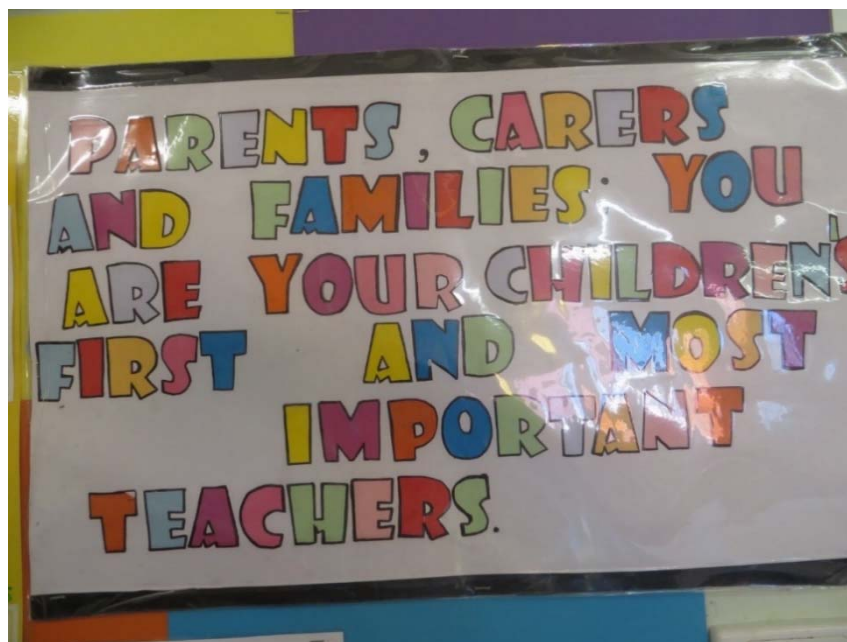 PARENTS, CARERS
AND FAMILIES: YOU
ARE YOUR CHILDREN'S
FIRST AND MOST
IMPORTANT
TEACHERS.